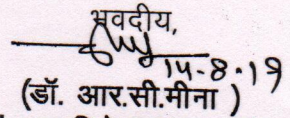 भवदीय,
14-8-19
(डॉ. आर.सी.मीना )